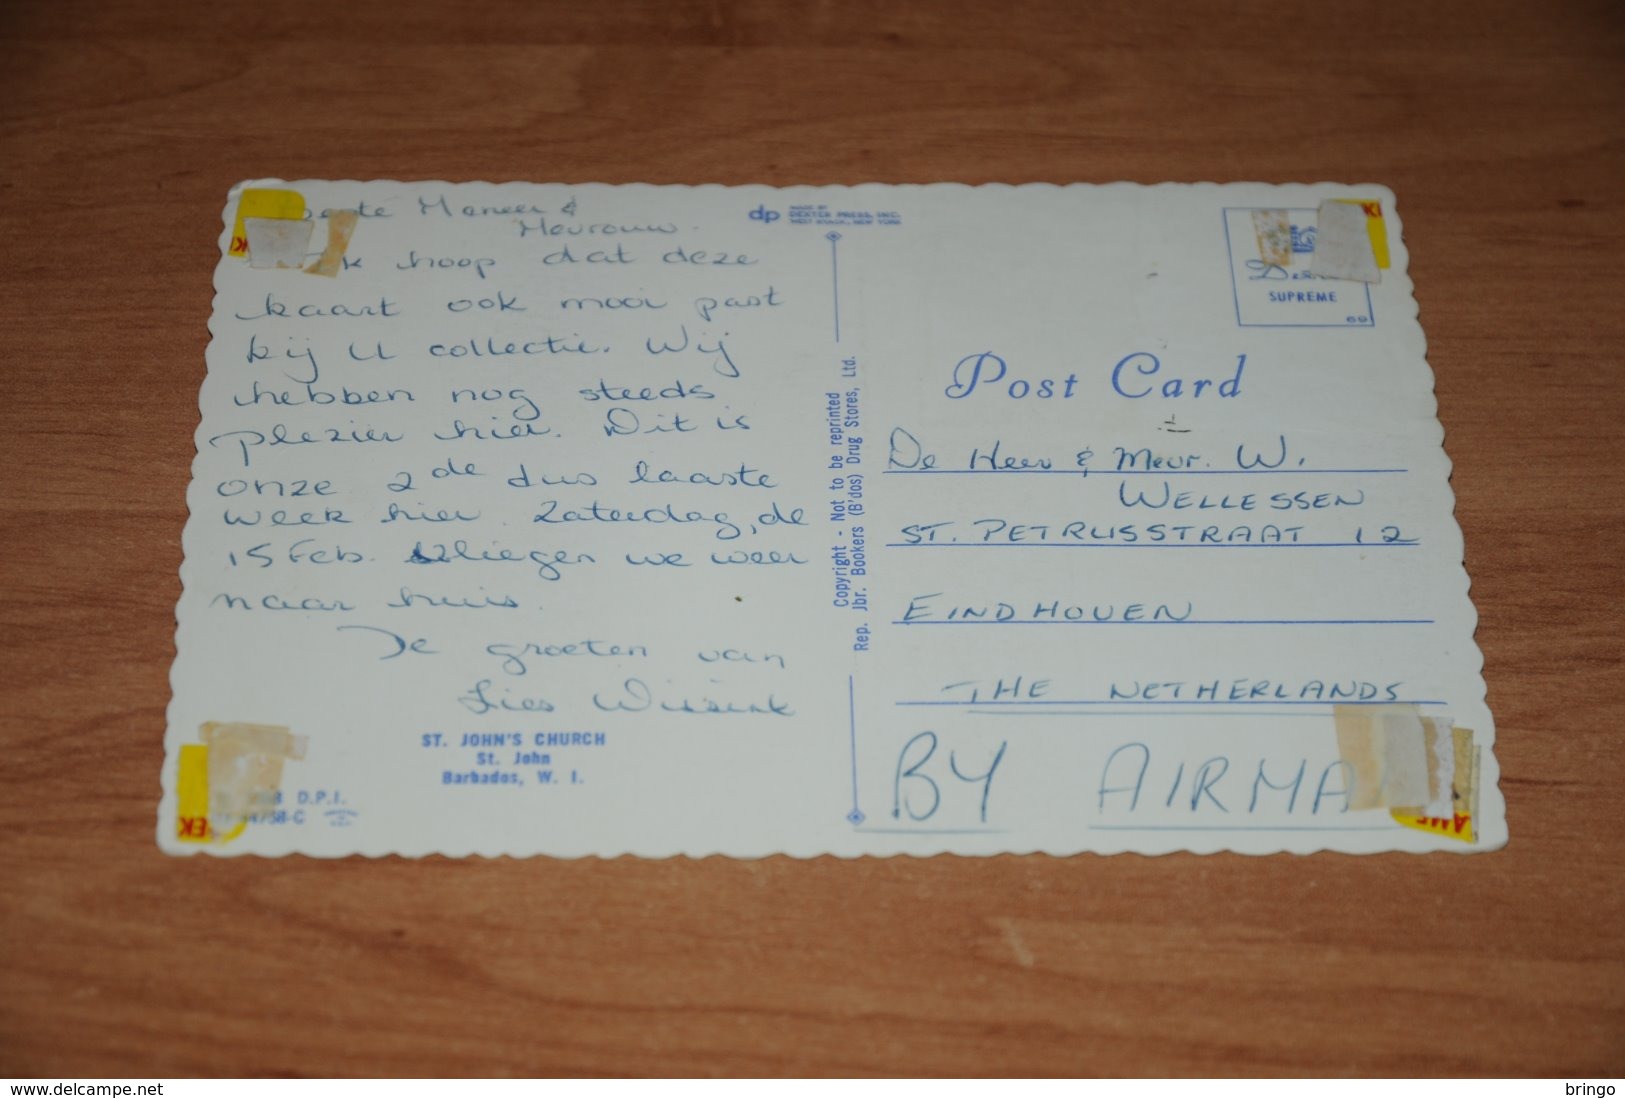 Meneer &
Mevrouw.
Ik hoop dat deze
kaart ook mooi past
bij U collectie. Wij
hebben nog steeds
plezier hier. Dit is
onze 2de dus laaste
week hier. Zaterdag, de
15 Feb. vliegen we weer
naar huis.
De groeten van
Lies
ST. JOHN'S CHURCH
St. John
Barbados, W. I.
D.P.I.
EK
dp MADE BY
DEXTER PRESS, INC.
WEST NYACK, NEW YORK
Copyright - Not to be reprinted
Rep. Jbr. Bookers (B'dos) Drug Stores, Ltd.
SUPREME
69
Post Card
De Heer & Mevr. W.
WELLESSEN
ST. PETRUSSTRAAT 12
EINDHOVEN
THE NETHERLANDS
BY AIRMA
www.delcampe.net
bringo